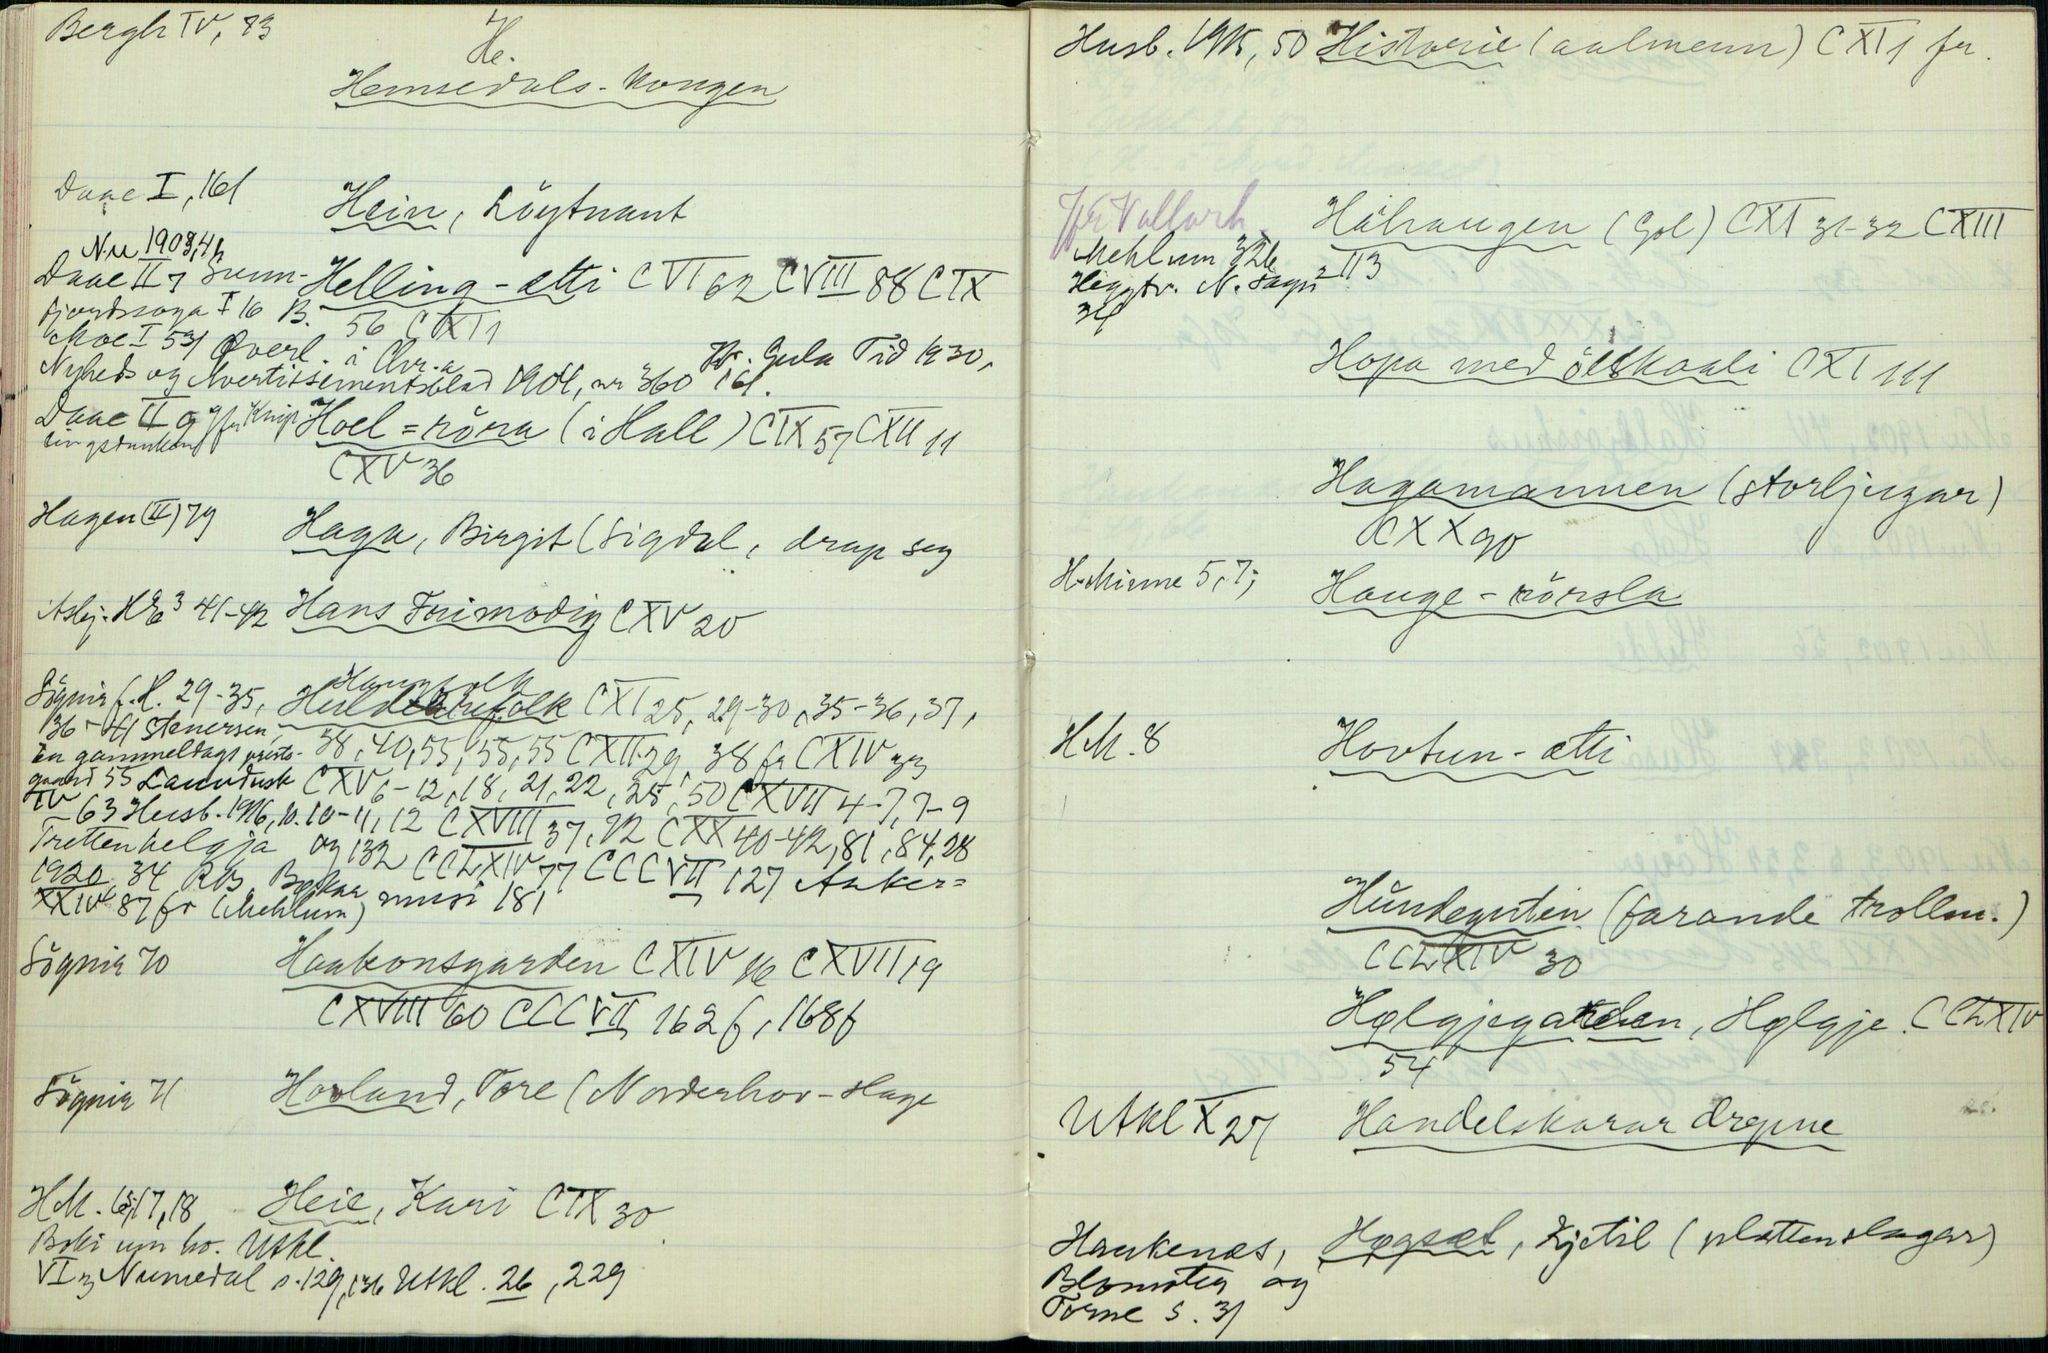 Bergh IV, 83
H.
Hemsedals-kongen
Daae I, 161
Hein, Löytnant
Nu 1908, 46
Daae II 7 Sunn-
Helling-ætti CVI 62 CVIII 88 CIX
fjordsoga I 16 B.
56 CXI 1
Moe I 53 Överl. i Chr.a
Nyheds og Avertissementsblad 1904, nr 360
Gula Tid 1930,
161.
Daae II 9
Hoel=röra (i Hall) CIX 57 CXII 11
CXV 36
Hagen (II) 79
Haga, Birgit (Sigdal, drap seg
Asbj. HE 3 41-42
Hans Frimodig CXV 20
Haugfolk
Sögnir f. H. 29-35,
Huldrefolk CXI 25, 29-30, 35-36, 37,
36-41 Stenersen,
38, 40, 55, 55, 55 CXII 29, 38 fr CXIV 33
En gammeldags preste-
gaard 55 Laundusk
CXV 6-12, 18, 21, 22, 25, 50 CXVII 4-7, 7-9
IV 63 Husb. 1916, 10. 10-11, 12 CXVIII 37, 72 CXX 40-42, 81, 84, 28
Trettenhelgja og 132 CCLXIV 77 CCCVII 127 Anker=
1920 34 musi 181
XXIV 87 fr (Mehlum)
Sögnir 70
Haakonsgarden CXIV 16 CXVII 19
CXVIII 60 CCCVII 162 f, 168 f
Sögnir 71
Hovland, Tore (Norderhov-Hage
H.M. 15, 17, 18
Heie, Kari CIX 30
Boki um ho. Utkl.
VI 3 Numedal s. 129, 136 Utkl. 26, 229
Husb. 1915, 50
Historie (aalmenn) CXI 1 fr.
Jfr Vallark.
Håhaugen (Gol) CXI 31-32 CXIII
Mehlum 326
113
Heggtv. N. Sagn
34
Hopa med ölskaali CXI 111
Hagamannen (storljugar)
CXX 90
H-Minne 5, 7;
Hauge-rörsla
H.M. 8
Hovtun-ætti
Hundeguten (farande trollm.)
CCLXIV 30
Hølgjegarden, Hølgje. CCLXIV
54
Utkl X 27
Handelskarar drepne
Haukenæs,
Høgset, Kjetil (plattenslagar)
Blomster og
Torne s. 31